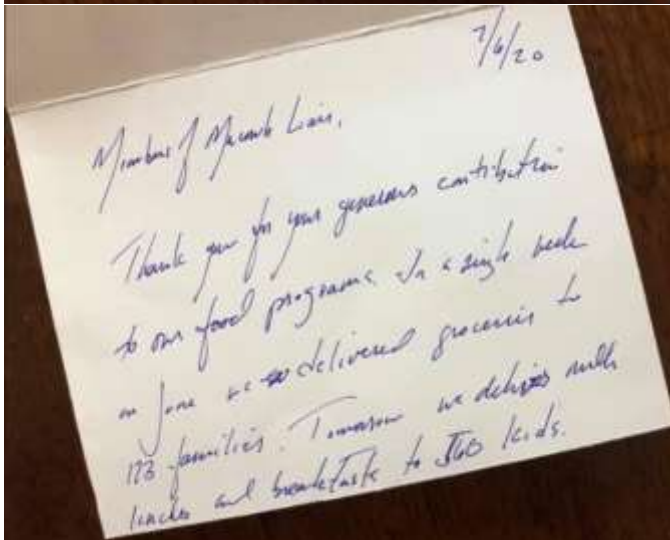 7/6/20
Members of Macomb Lions,
Thank you for your generous contribution
to our food programs. In a single week
in June we delivered groceries to
173 families. Tomorrow we deliver milk
lunches and breakfasts to 560 kids.